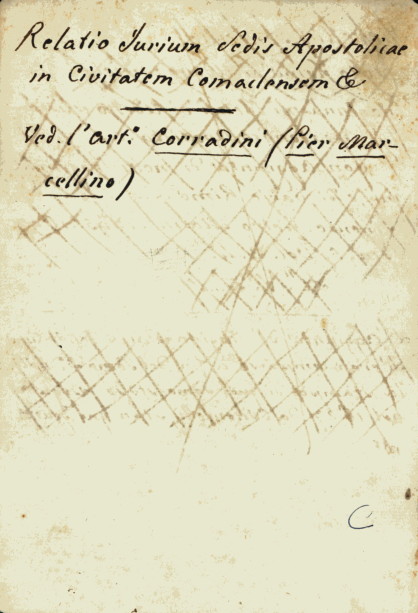 Relatio Jurium Sedis Apostolicae
in Civitatem Comaclensem &
Ved. l'art.º Corradini (Pier Mar-
cellino)
C